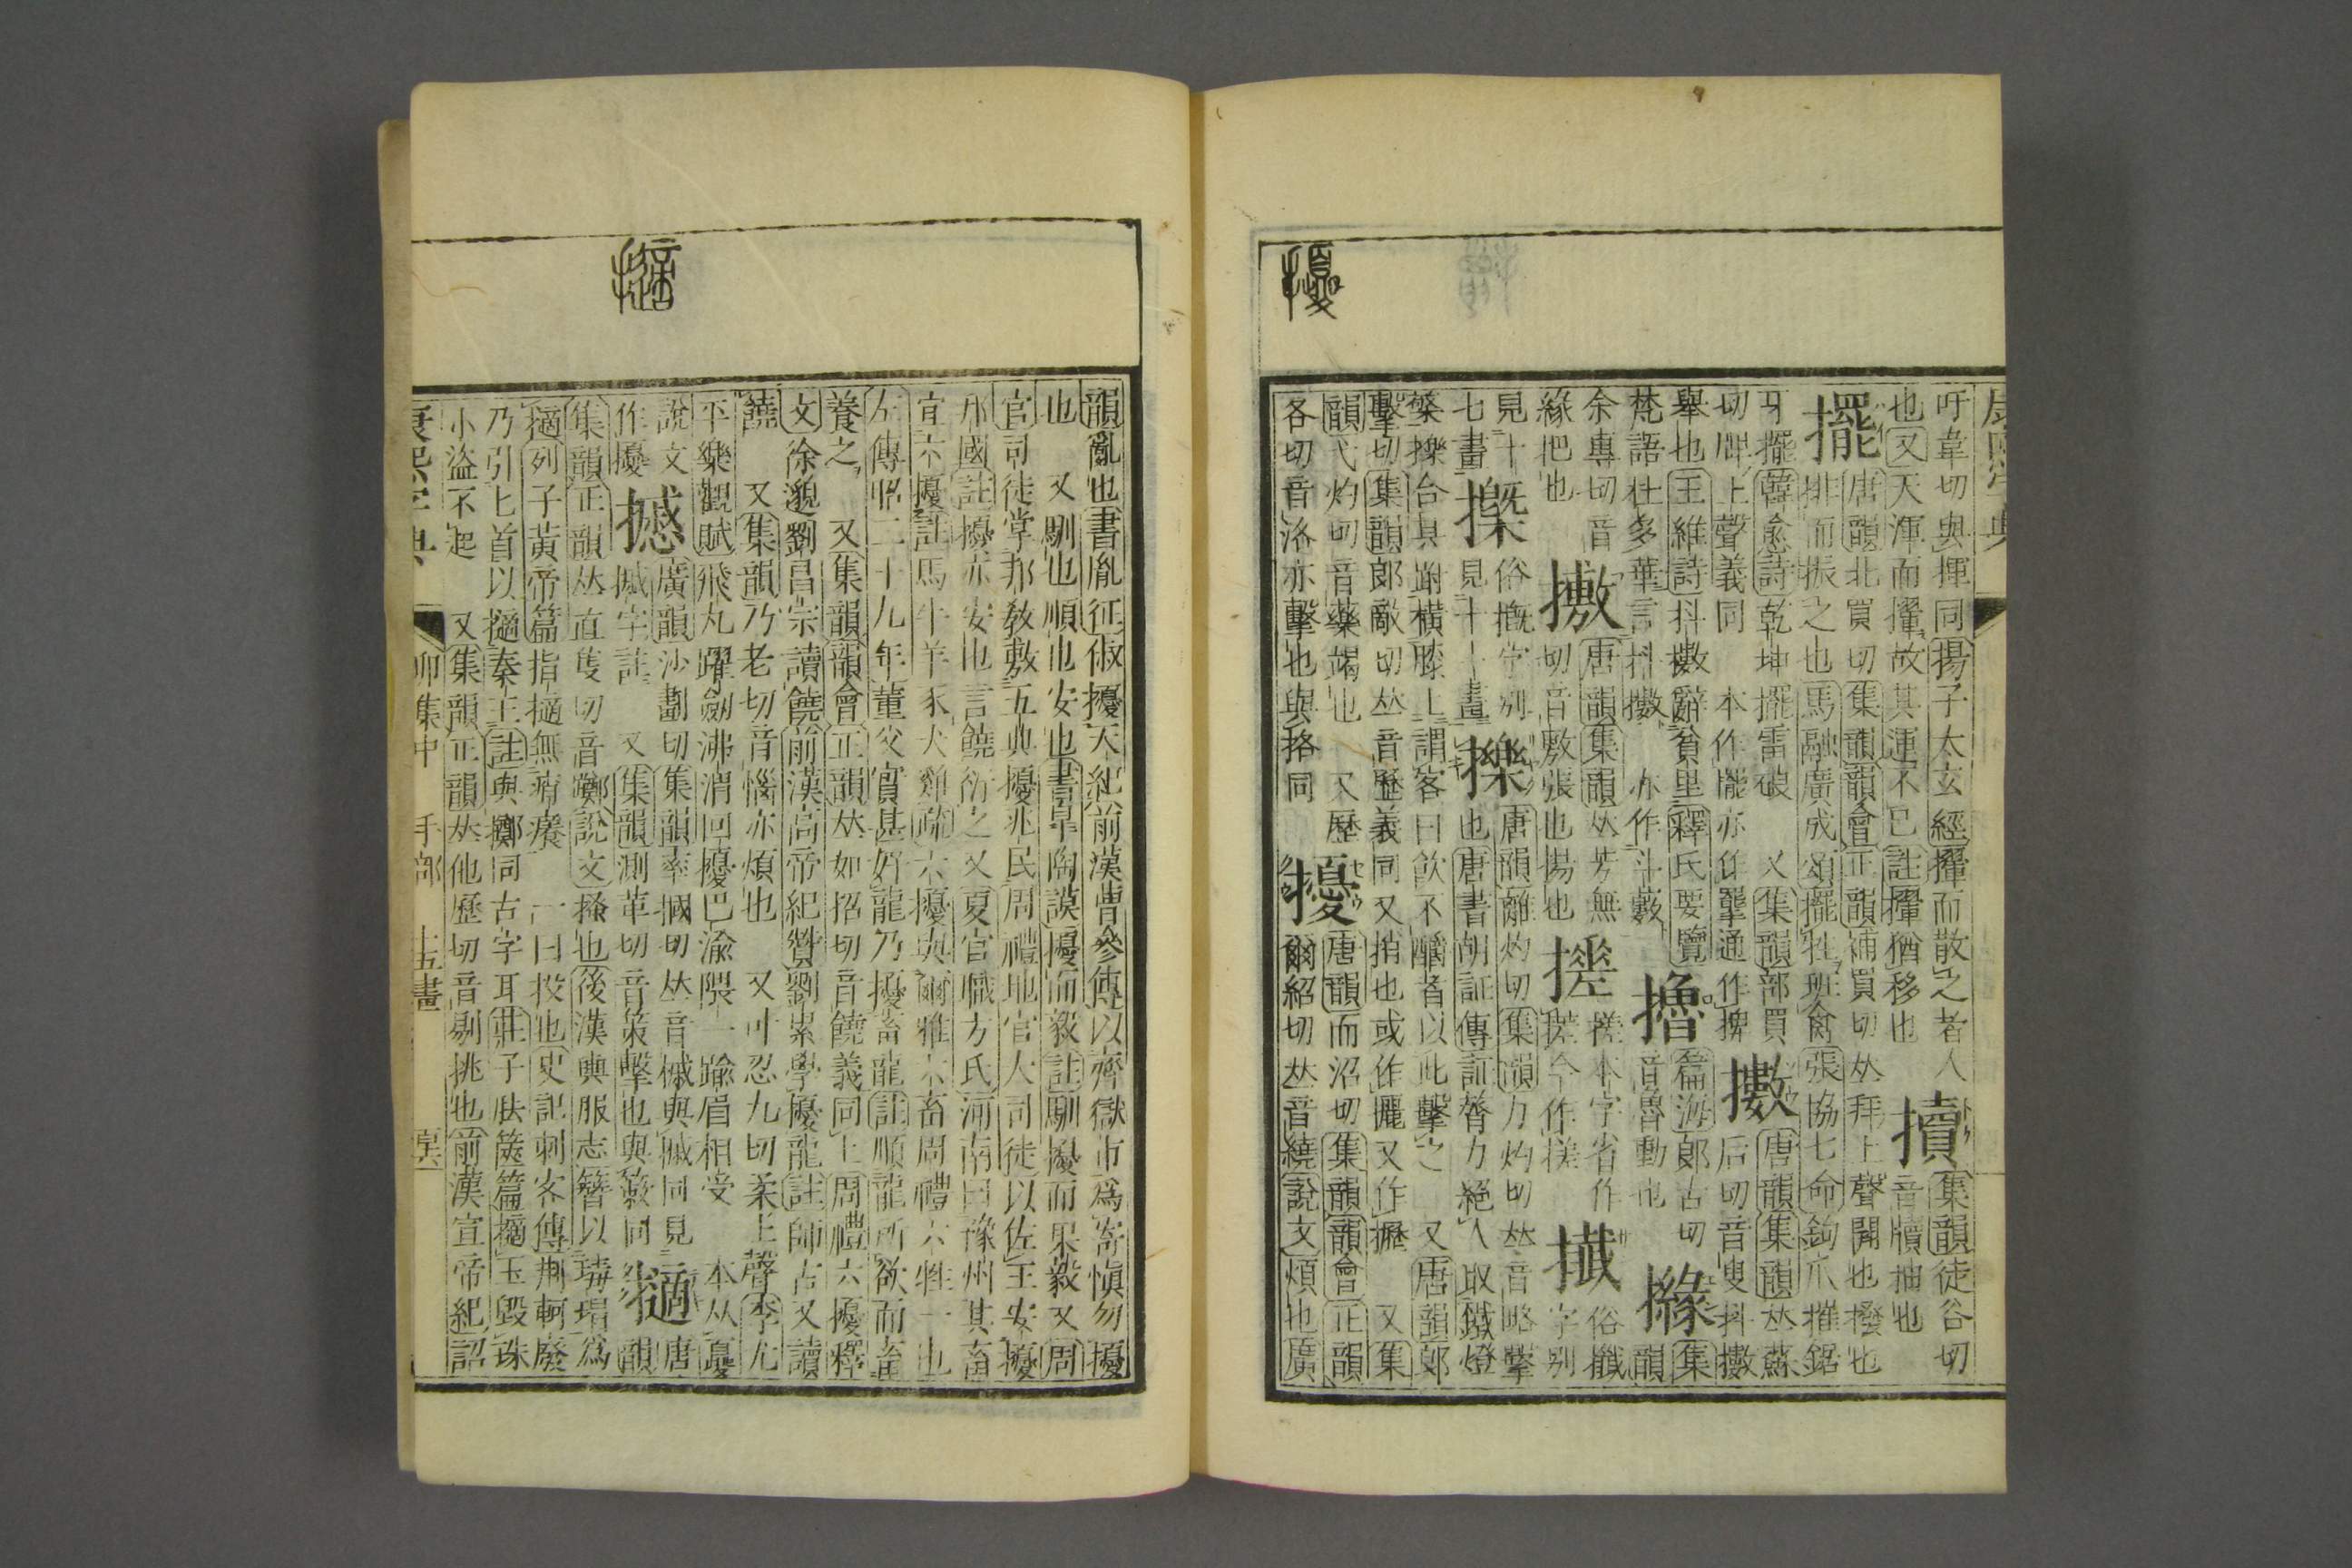 吁韋切與揮同揚子太玄經攆而散之者人
也又天渾而攆故其運不已註攆猶移也
集韻徒谷切
音牘抽也
擺
唐韻北買切集韻韻會正韻補買切𠀤拜上聲開也撥也
排而振之也馬融廣成頌擺牲班禽張協七命鉤爪摧鋸
牙擺韓愈詩乾坤擺雷硠 又集韻部買
切上聲義同 本作亦作通作捭
擻
唐韻集韻𠀤蘇
后切音叟抖擻
舉也王維詩抖擻辭貧里釋氏要覽
梵語杜多華言抖擻 亦作斗藪
擼
篇海郎古切
音魯動也
集
韻
余專切音
緣把也
唐韻集韻𠀤芳無
切音敷張也揚也
搓本字省作
搓今作搓
俗攕
字別
見十
七畫
俗摡字別
見十一畫
擽
唐韻離灼切集韻力灼切𠀤音略擊
也唐書胡証傳証膂力絕人取鐵燈
檠擽合其跗橫膝上謂客曰飲不釂者以此擊之 又唐韻郎
擊切集韻郎敵切𠀤音歷義同又捎也或作攦又作攊 又集
韻弋灼切音藥也 又歷
各切音洛亦擊也與挌同
擾
唐韻而沼切集韻韻會正韻
爾紹切𠀤音繞說文煩也廣
擾
韻亂也書胤征俶擾天紀前漢曹參傳以齊獄市爲寄愼勿擾
也 又馴也順也安也書臯陶謨擾而毅註馴擾而果毅又周
官司徒掌邦敎敷五典擾兆民周禮地官大司徒以佐王安擾
邦國註擾亦安也言饒衍之又夏官職方氏河南曰豫州其畜
宜六擾註馬牛羊豕犬雞疏六擾與爾雅六畜周禮六牲一也
左傳昭二十九年董父實甚好龍乃擾畜龍註順龍所欲而畜
養之 又集韻韻會正韻𠀤如招切音饒義同上周禮六擾釋
文徐邈劉昌宗讀饒前漢高帝紀贊劉累學擾龍註師古又讀
饒 又集韻乃老切音惱亦煩也 又叶忍九切柔上聲李尤
平樂觀賦飛丸躍劒沸渭回擾巴渝隈一踰眉相受 本从夒
說文
作擾
廣韻沙劃切集韻率摑切𠀤音㨖與㨖同見
字註 又集韻測革切音策擊也與敇同
擿
唐
韻
集韻正韻𠀤直隻切音躑說文搔也後漢輿服志簪以瑇瑁爲
擿列子黃帝篇指擿無痟癢 一曰投也史記刺客傳荆軻廢
乃引匕首以擿秦王註與擲同古字耳莊子胠篋篇擿玉毀珠
小盜不起 又集韻正韻𠀤他歷切音剔挑也前漢宣帝紀詔
擿
康熙字典
卯集中 手部 十五畫